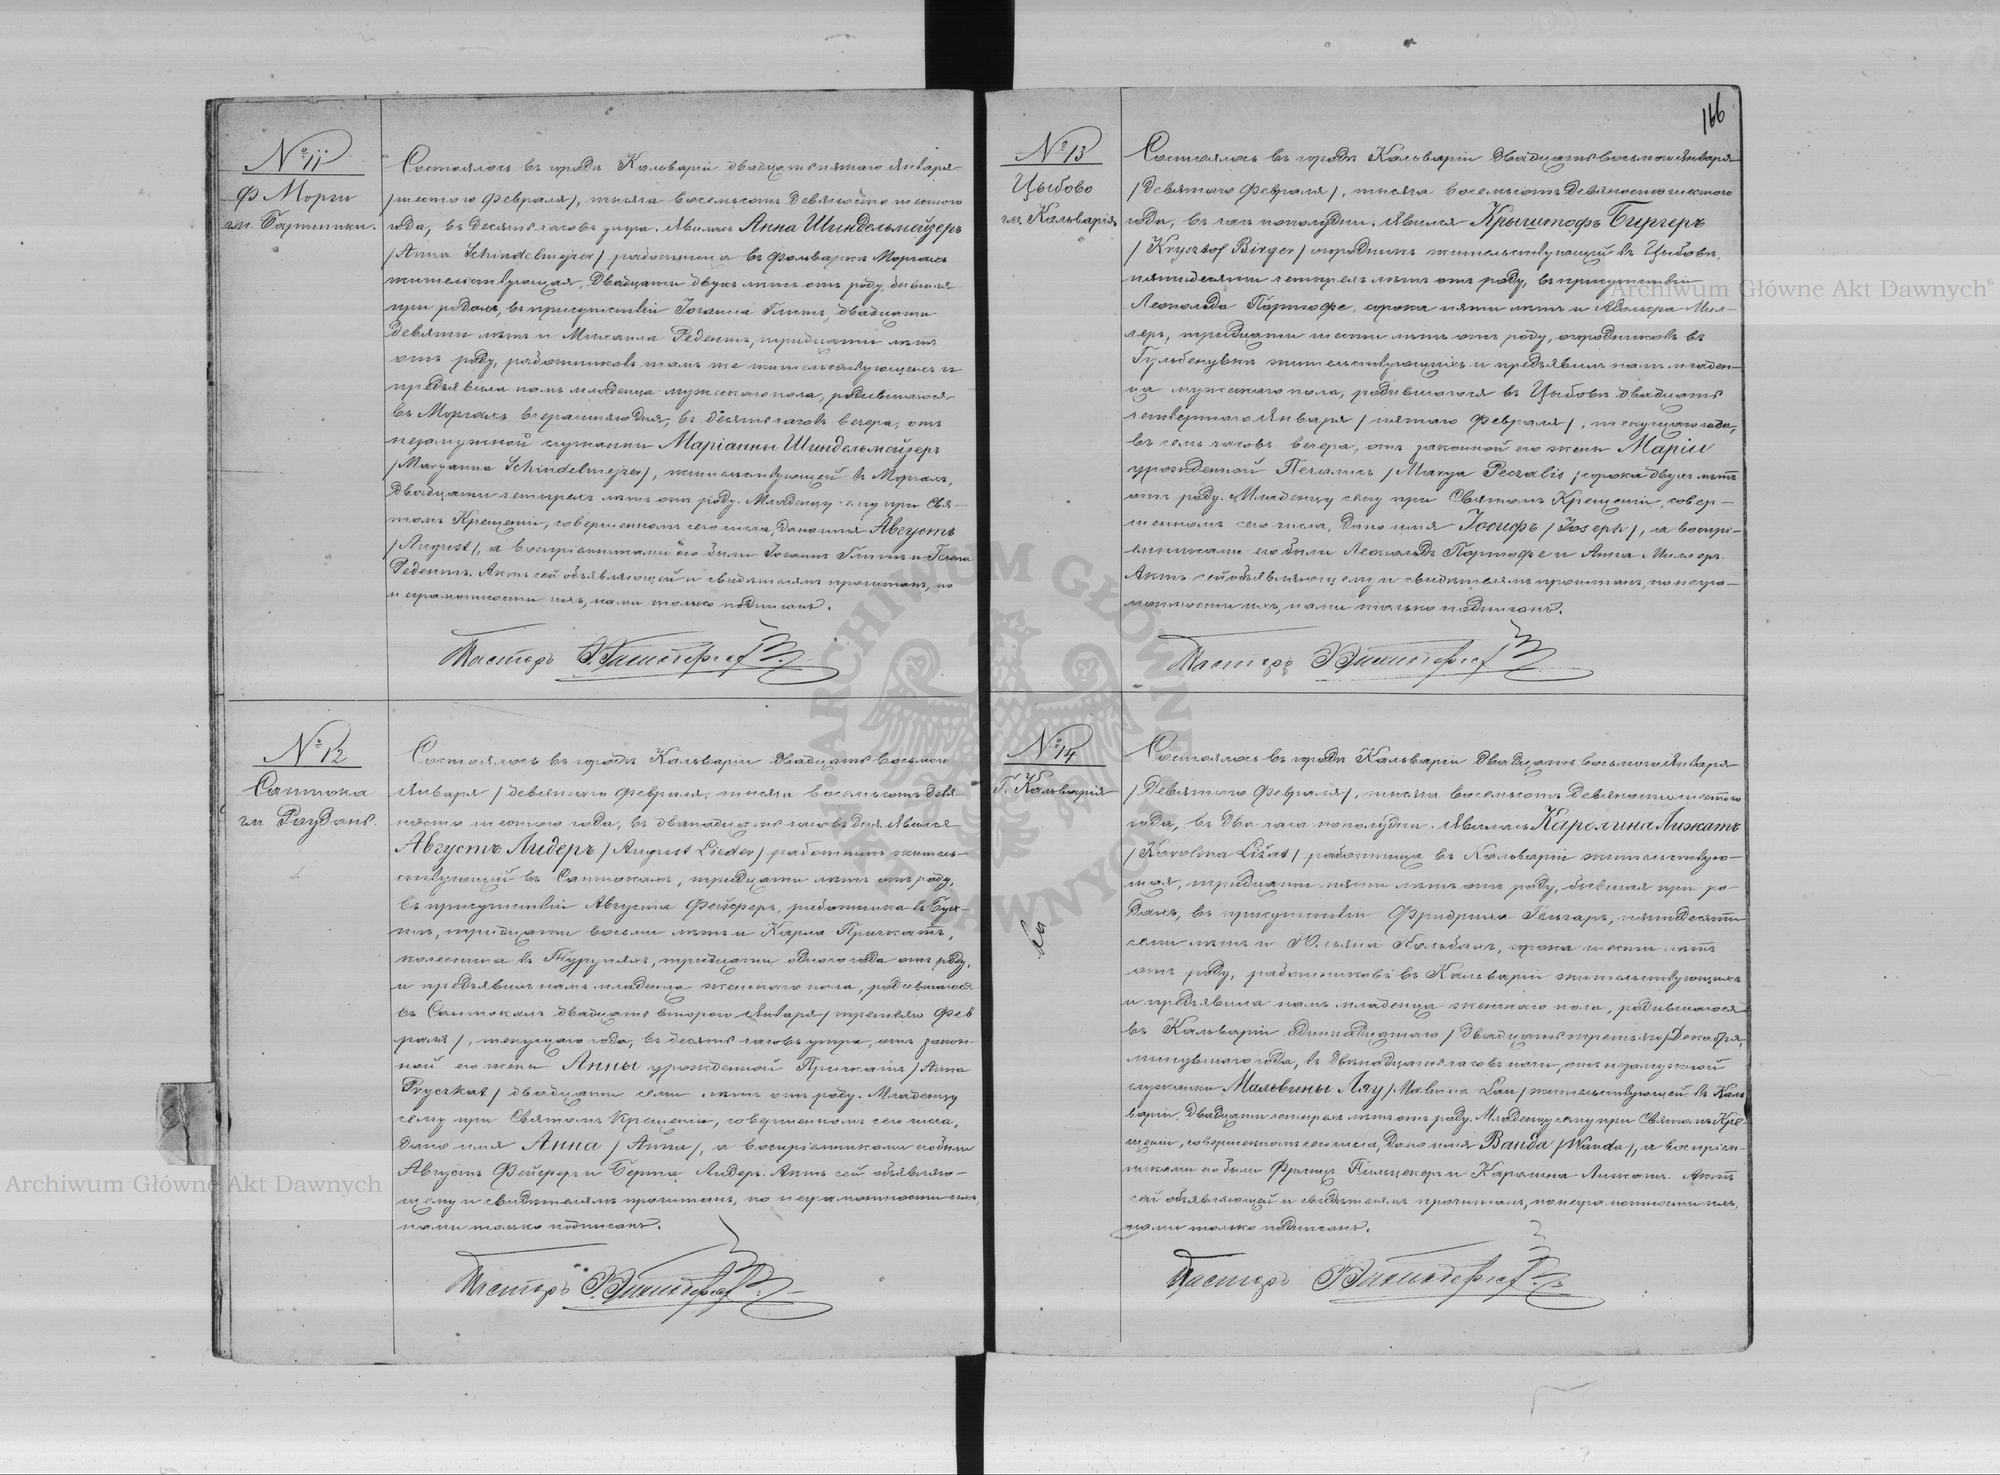 № 11
Ф Морги
гм. Бартники.
Состоялось въ городѣ Кальваріи двадцать пятаго Января
/шестого Февраля/, тысяча восемьсотъ девяносто шестого
года, въ десять часовъ утра. Явилась Анна Шиндельмейзеръ
/Anna Schindelmejzer/ работница въ фольваркѣ Моргахъ
жительствующая, двадцати двухъ лѣтъ отъ роду, бывшая
при родахъ, въ присутствіи Іоганна
девяти лѣтъ и Михаила Редентъ, тридцати лѣтъ
отъ роду, работниковъ тамъ же жительствующихъ и
предъявила намъ младенца мужескаго пола, родившагося
въ Моргахъ вчерашняго дня, въ десять часовъ вечера, отъ
незамужной служанки Маріанны Шиндельмейзеръ
/Maryanna Schindelmejzer/, жительствующей въ Моргахъ,
двадцати четырехъ лѣтъ отъ роду. Младенцу сему при Свя-
томъ Крещеніи, совершенномъ сего числа, дано имя Августъ
/August/, а воспріемниками его были Іоганъ и Гелена
Редентъ. Актъ сей объявляющей и свидѣтелямъ прочитанъ, по
неграмотности ихъ, нами только подписанъ.
Пасторъ
№ 12
Сантока
гм Раудань.
Состоялось въ городѣ Кальваріи двадцать восьмого
Января /девятаго Февраля, тысяча восемьсотъ девя
носто шестого года, въ двѣнадцать часовъ дня. Явился
Августъ Лидеръ /August Lieder/ работникъ житель-
ствующій въ Сантокахъ, тридцати лѣтъ отъ роду,
въ присутствіи Августа Фейереръ, работника въ
тридцати восьми лѣтъ и Карла Причкатъ,
колесника въ тридцати одного года отъ роду,
и предъявилъ намъ младенца женскаго пола, родившагося
въ Сантокахъ двадцать второго Января /третьяго Фев
раля/, текущаго года, въ десять часовъ утра, отъ закон-
ной его жены Анны урожденной Причкатъ /Anna
Pryczkat/ двадцати семи лѣтъ отъ роду. Младенцу
сему при Святомъ Крещеніи, совершенномъ сего числа,
дано имя Анна /Anna/, а воспріемниками его были
Августъ Фейереръ и Берта Лидеръ. Актъ сей объявляю-
щему и свидѣтелямъ прочитанъ, по неграмотности ихъ,
нами только подписанъ.
Пасторъ
166
№ 13
Цыбово
гм. Кальварія
Состоялось въ городѣ Кальваріи двадцать восьмого Января
/девятаго Февраля/, тысяча восемьсотъ девяносто шестого
года, въ часъ пополудни. Явился Крыштофъ Биргеръ
/Krysztof Birger/ огородникъ жительствующій въ Цыбовѣ,
пятидесяти четырехъ лѣтъ отъ роду, въ присутствіи
Леопольда Партофе, сорока пяти лѣтъ и Адольфа Мил-
леръ, тридцати шести лѣтъ отъ роду, огородниковъ въ
жительствующихъ и предъявилъ намъ младен-
ца мужескаго пола, родившагося въ Цыбовѣ двадцать
четвертаго Января /пятаго Февраля/, текущаго года,
въ семь часовъ вечера, отъ законной его жены Маріи
урожденной Печалисъ /Marya Peczalis/, сорока двухъ лѣтъ
отъ роду. Младенцу сему при Святомъ Крещеніи, совер-
шенномъ сего числа, дано имя Іосифъ /Joseph/, а воспрі-
емниками его были Леопольдъ Партофе и Анна Миллеръ.
Актъ сей объявляющему и свидѣтелямъ прочитанъ, по негра-
мотности ихъ, нами только подписанъ.
Пасторъ
№ 14
Г. Кальварія
Состоялось въ городѣ Кальваріи двадцать восьмого Января
/девятаго Февраля/, тысяча восемьсотъ девяносто шестого
года, въ два часа пополудни. Явилась Каролина Лижатъ
/Karolina Liżat/ работница въ Кальваріи жительствую-
щая, тридцати пяти лѣтъ отъ роду, бывшая при ро-
дахъ, въ присутствіи Фридриха пятидесяти
семи лѣтъ и сорока шести лѣтъ
отъ роду, работниковъ въ Кальваріи жительствующихъ
и предъявила намъ младенца женскаго пола, родившагося
въ Кальваріи одинадцатаго /двадцать третьяго/ Декабря,
минувшаго года, въ двѣнадцать часовъ ночи, отъ незамужной
служанки Мальвины Лау /Malwina Lau/ жительствующей въ Каль
варіи, двадцати четырехъ лѣтъ отъ роду. Младенцу сему при Святомъ Кре-
щеніи, совершенномъ сего числа, дано имя Ванда /Wanda/, а воспріем-
никами его были Францъ и Каролина Лижатъ. Актъ
сей объявляющей и свидѣтелямъ прочитанъ, по неграмотности ихъ,
нами только подписанъ.
Пасторъ
Archiwum Główne Akt Dawnych
Archiwum Główne Akt Dawnych
ARCHIWUM GŁÓWNE AKT DAWNYCH